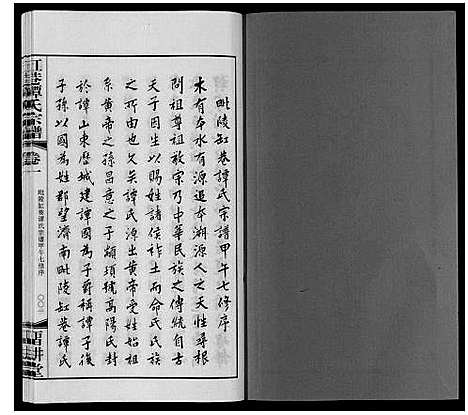 毗陵缸巷譚氏宗譜甲午七修序
木有本水有源追本溯源人之天性尋根
問祖尊祖敬宗乃中華民族之傳統自古
天子因生以賜姓諸侯祚之土而命氏氏族
之所由也久矣譚氏源出黃帝受姓始祖
系黃帝之孫昌意之子顓頊號高陽氏封
於譚山東歷城建譚國為子爵稱譚子後
子孫以國為姓郡望濟南毗陵缸巷譚氏
缸巷譚氏宗譜
卷一
毗陵缸巷譚氏宗譜甲午七修序
〇〇三
耕堂